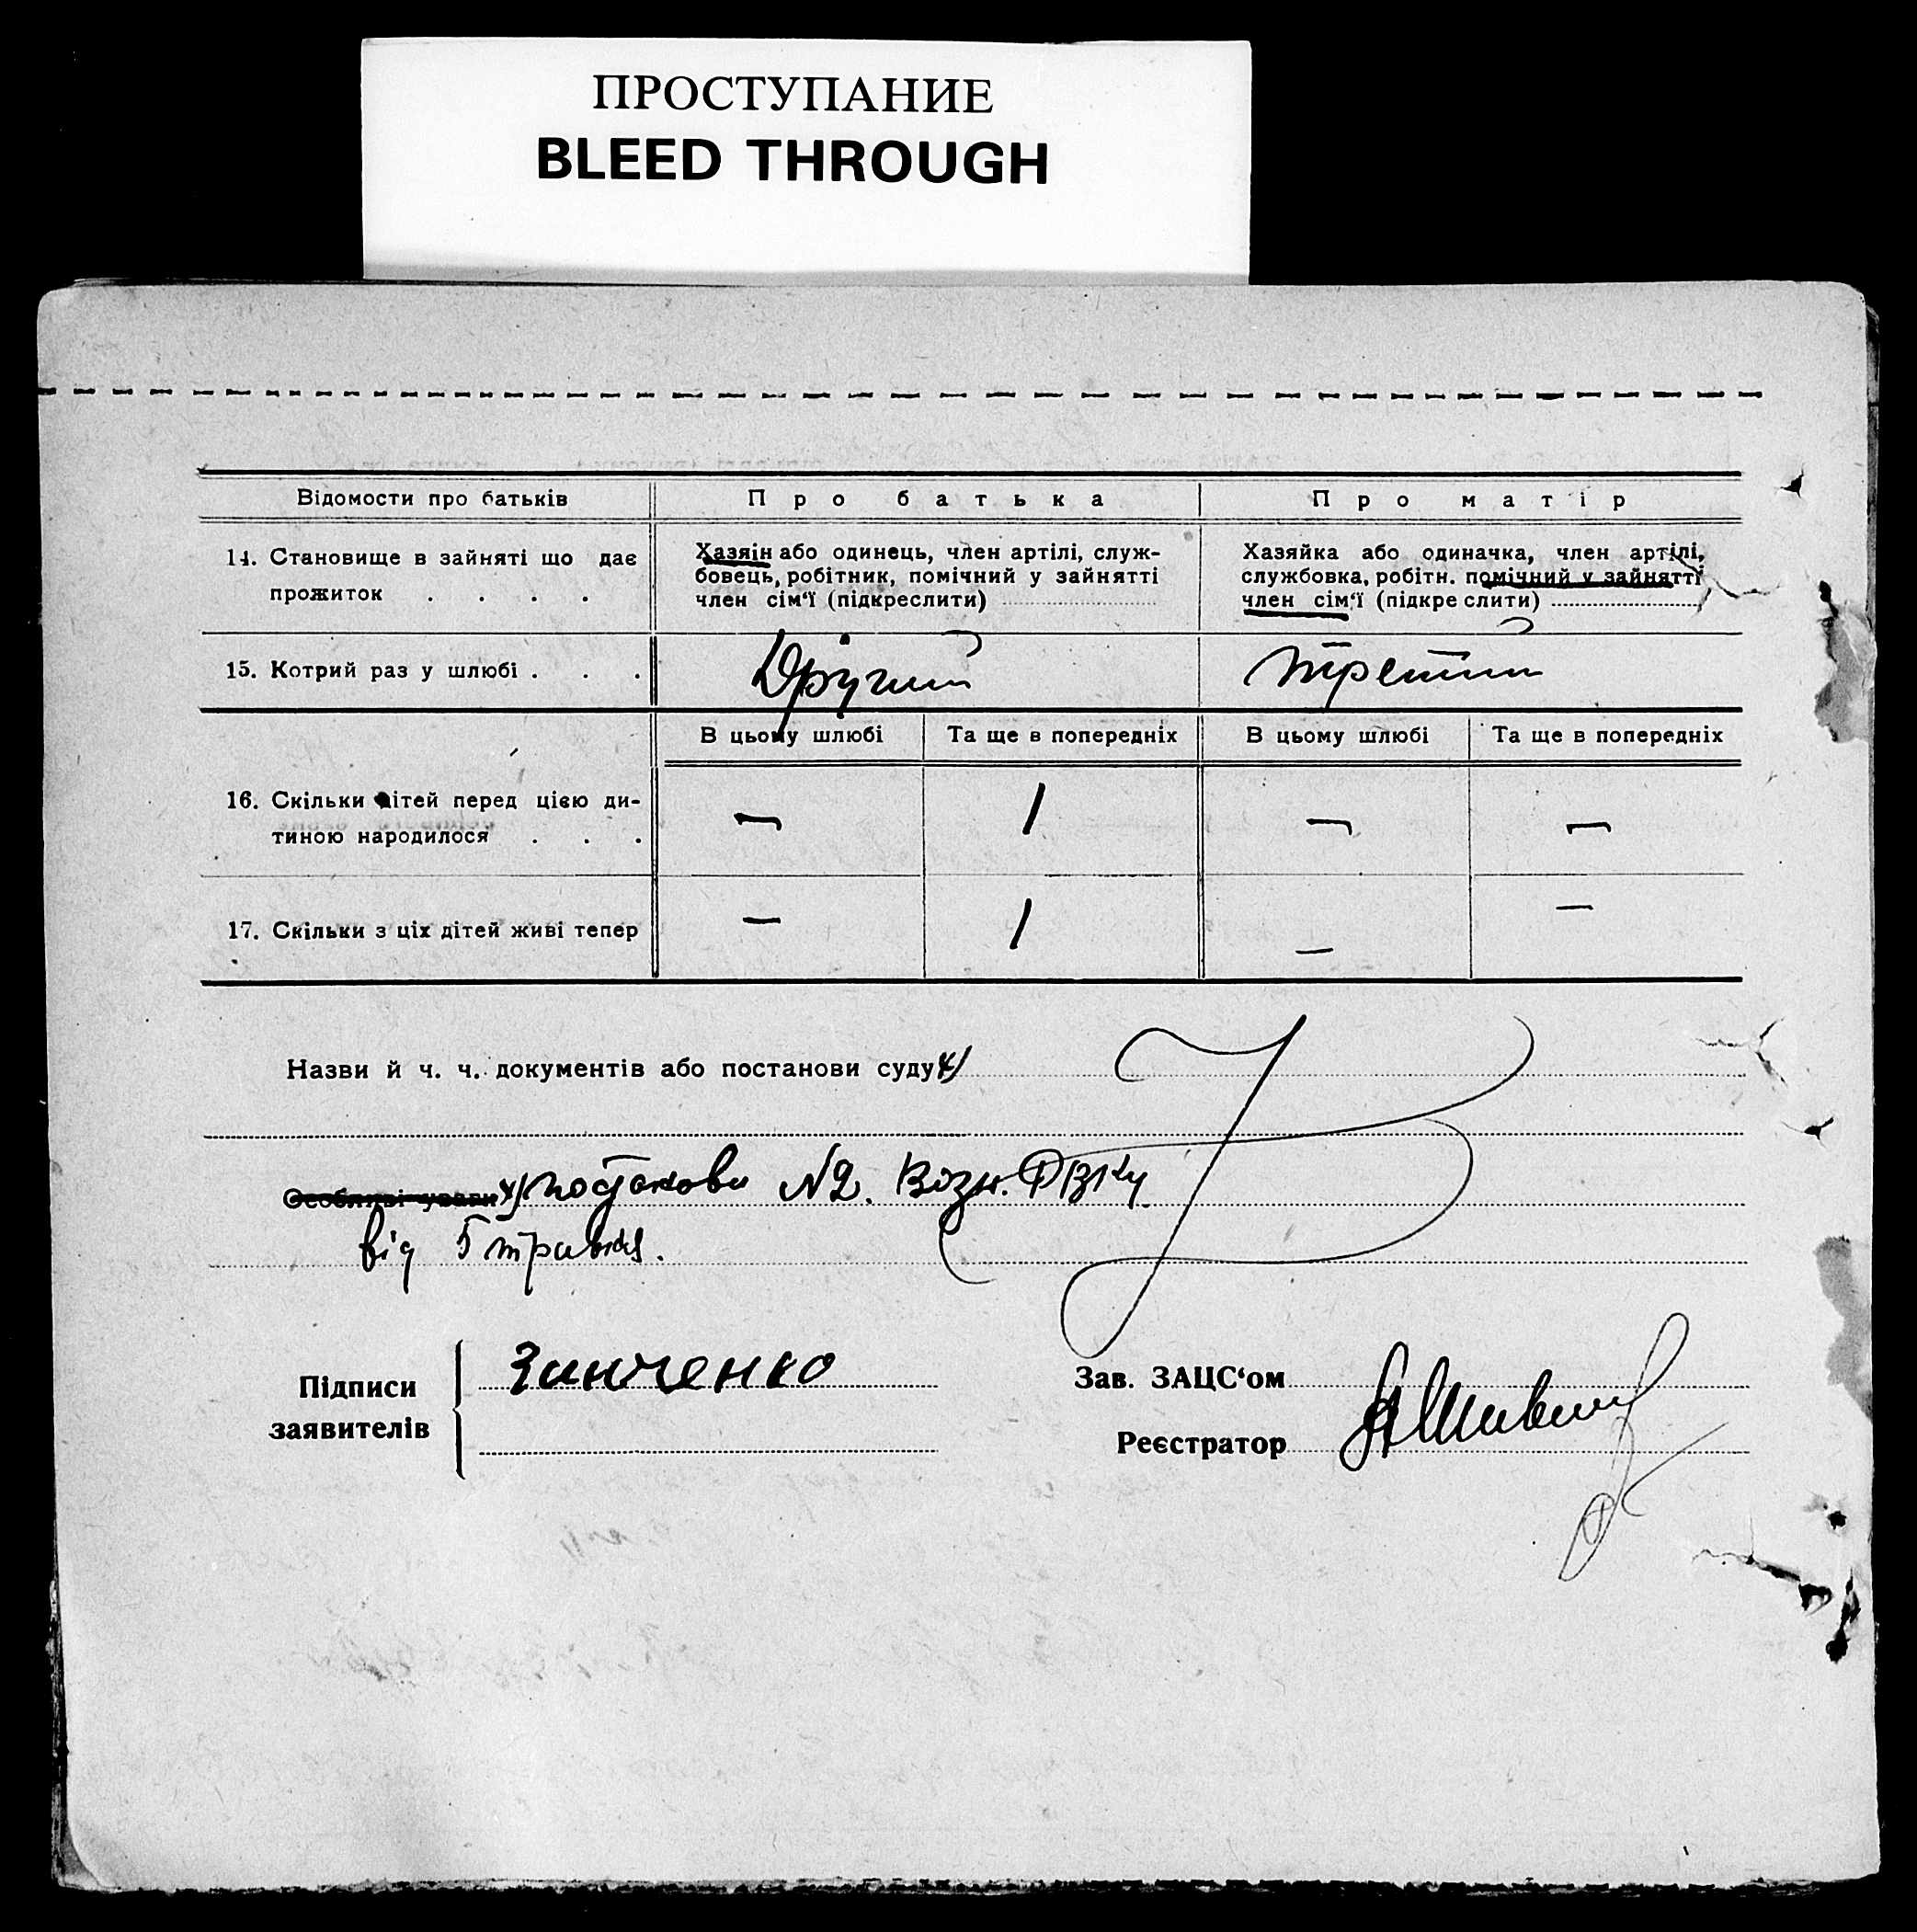 ПРОСТУПАНИЕ
BLEED THROUGH
Відомости про батьків Про батька Про матір
14. Становище в зайняті що дає прожиток . . . .
Хазяін або одинець, член артілі, служ-
бовець, робітник, помічний у зайнятті
член сім‘ї (підкреслити)
Хазяйка або одиначка, член артілі,
службовка, робітн. помічний у зайнятті
член сім‘ї (підкреслити)
15. Котрий раз у шлюбі . . . Другий третий
В цьому шлюбі Та ще в попередніх В цьому шлюбі Та ще в попередніх
16. Скільки дітей перед цією ди-
тиною народилося . . . — 1 — —
17. Скільки з ціх дітей живі тепер — 1 — —
Назви й ч. ч. документів або постанови суду х)
Особливі уваги х) постанови №2. Возн.
від 5 травня.
Підписи
заявителів
Зинченко
Зав. ЗАЦС‘ом
Реєстратор